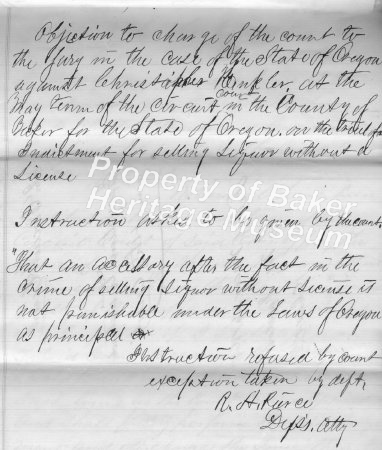 Objection to charge of the court to
the Jury in the case of the State of Oregon
against Christopher Winkler, at the
May Term of the Circuit Court in the County of
Baker for the State of Oregon. on the trial of an
Indictment for selling liquor without a
License
Property of Baker
Heritage Museum
Instruction asked to be given by the court
"That an accessory after the fact in the
crime of selling liquor without license is
not punishable under the Laws of Oregon
as principal
Instruction refused by court
exception taken by deft.
R. A. Pierce
Deft's. Atty